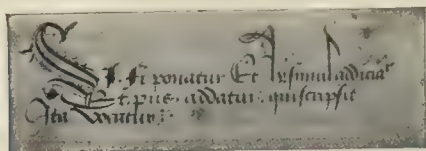 ponatur Et simul addiciaʳ
Et pus addatur. qui scripsit
Ita Vocatur